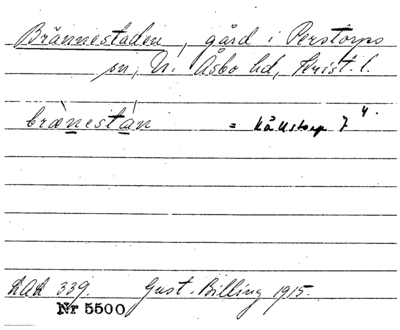 Brännestaden, gård i Perstorps
sn, N. Åsbo hd, Krist. l.
bræ̀nestan = Källstorp 7⁴.
LAL 339. Gust. Billing 1915.
Nr 5500